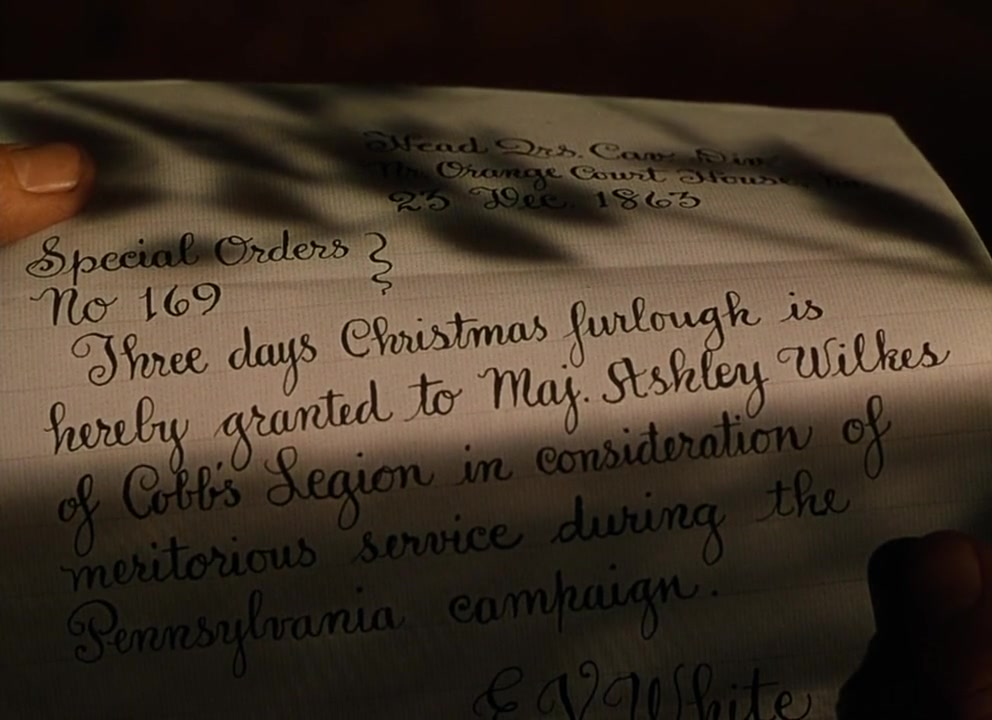 Head Qrs. Cav. Div.
Nr. Orange Court House,
23 Dec. 1863
Special Orders }
No 169
Three days Christmas furlough is
hereby granted to Maj. Ashley Wilkes
of Cobb's Legion in consideration of
meritorious service during the
Pennsylvania campaign.
E V White